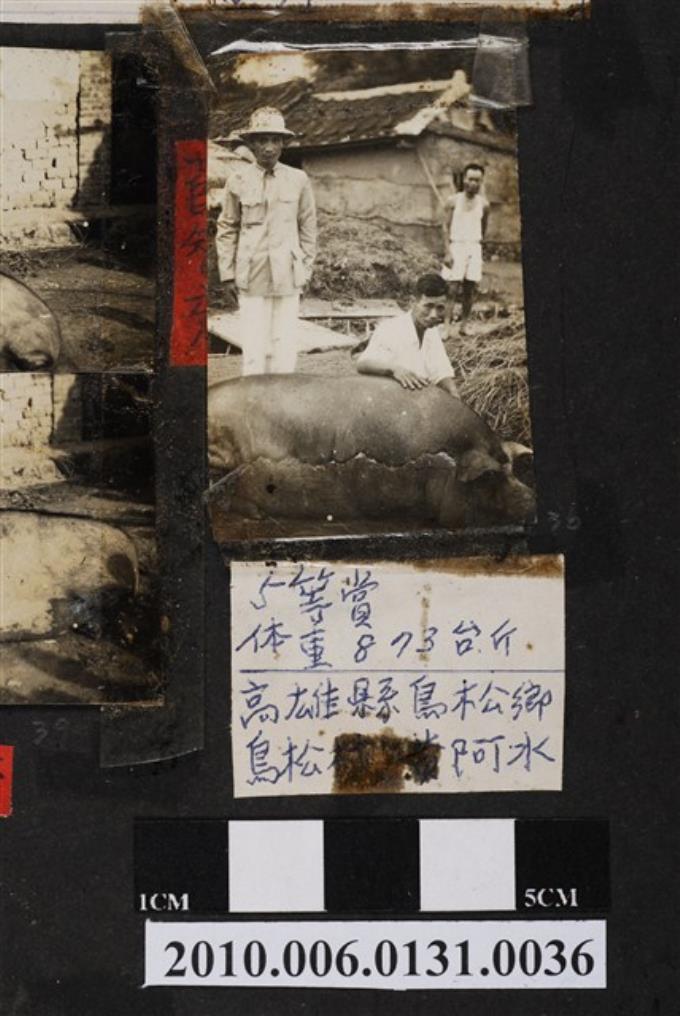 5等賞
体重873台斤
高雄縣鳥松鄉
鳥松村 阿水
1CM
5CM
2010.006.0131.0036
36
39